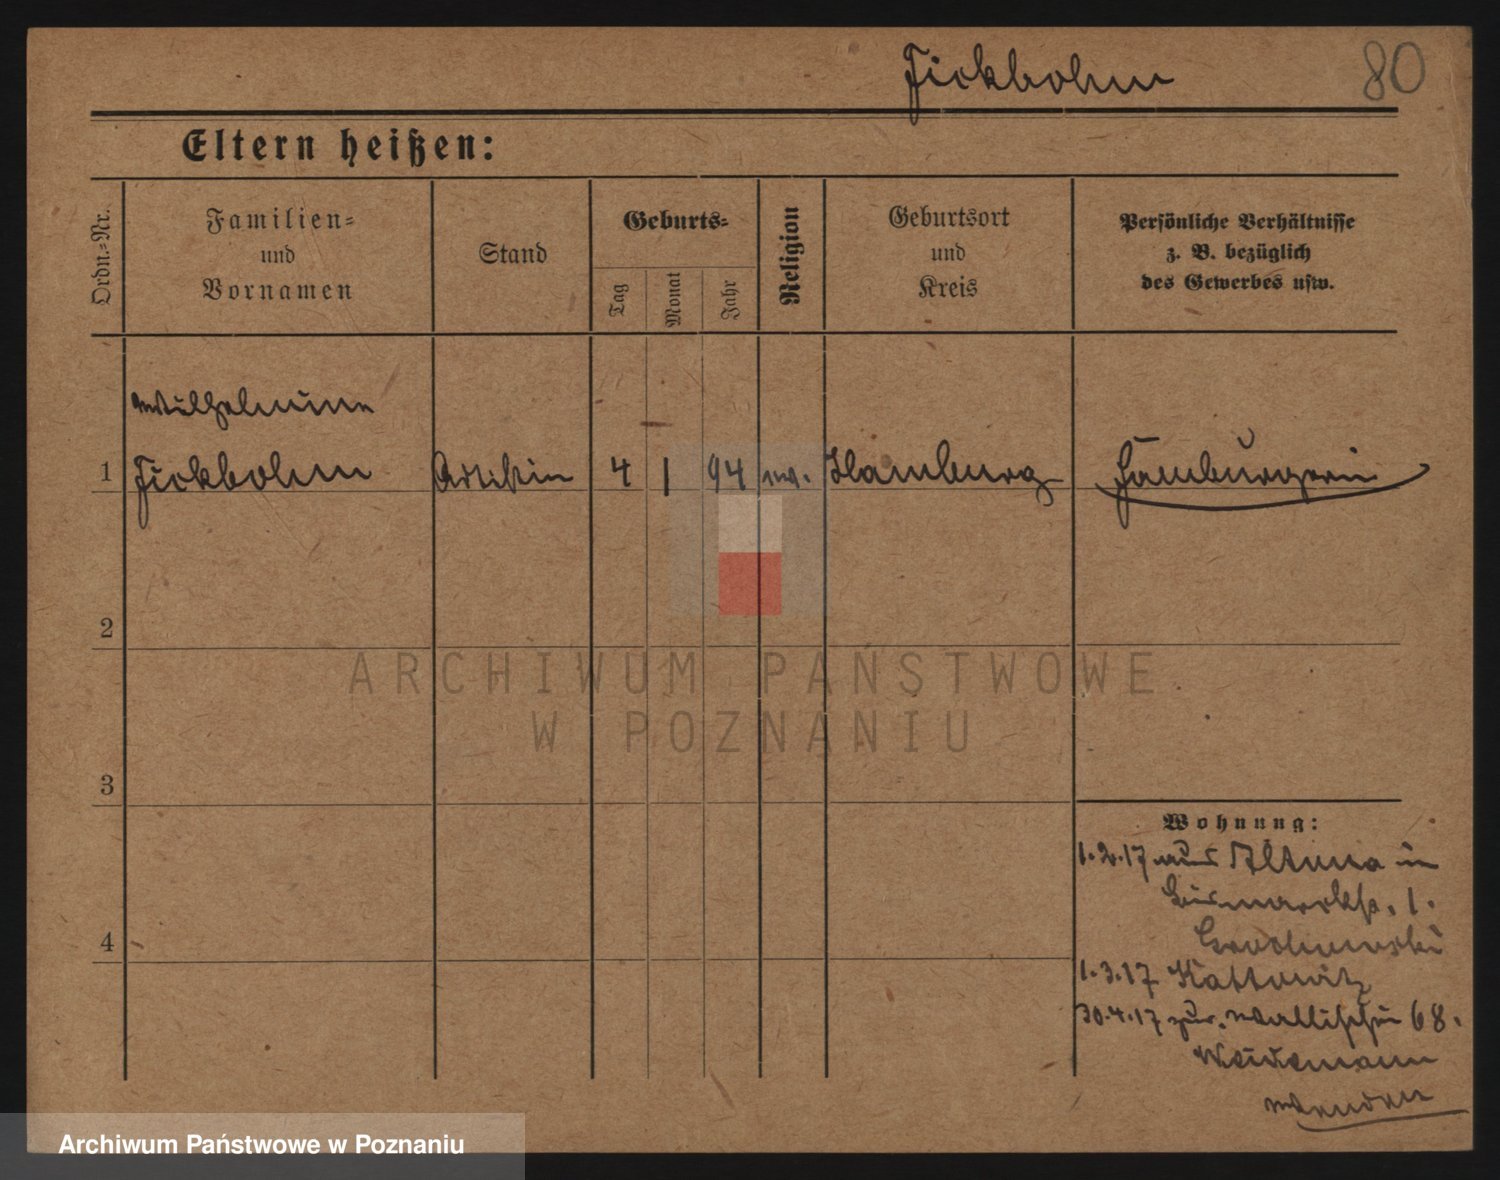 Fickbohm
80
Eltern heißen:
Ordn.-Nr.
Familien-
und
Vornamen
Stand
Geburts-
Tag
Monat
Jahr
Religion
Geburtsort
und
Kreis
Persönliche Verhältnisse
z. B. bezüglich
des Gewerbes usw.
Wilhelmine
1 Fickbohm Artistin 4 1 94 ev. Hamburg Hamburgerin
2
3
4
Wohnung:
1.2.17 aus Altona in
Bismarckstr. 1.
Grochowski
1.3.17 Kattowitz
30.4.17 zur. Wallischei 68.
Weidemann
ARCHIWUM PAŃSTWOWE
W POZNANIU
Archiwum Państwowe w Poznaniu